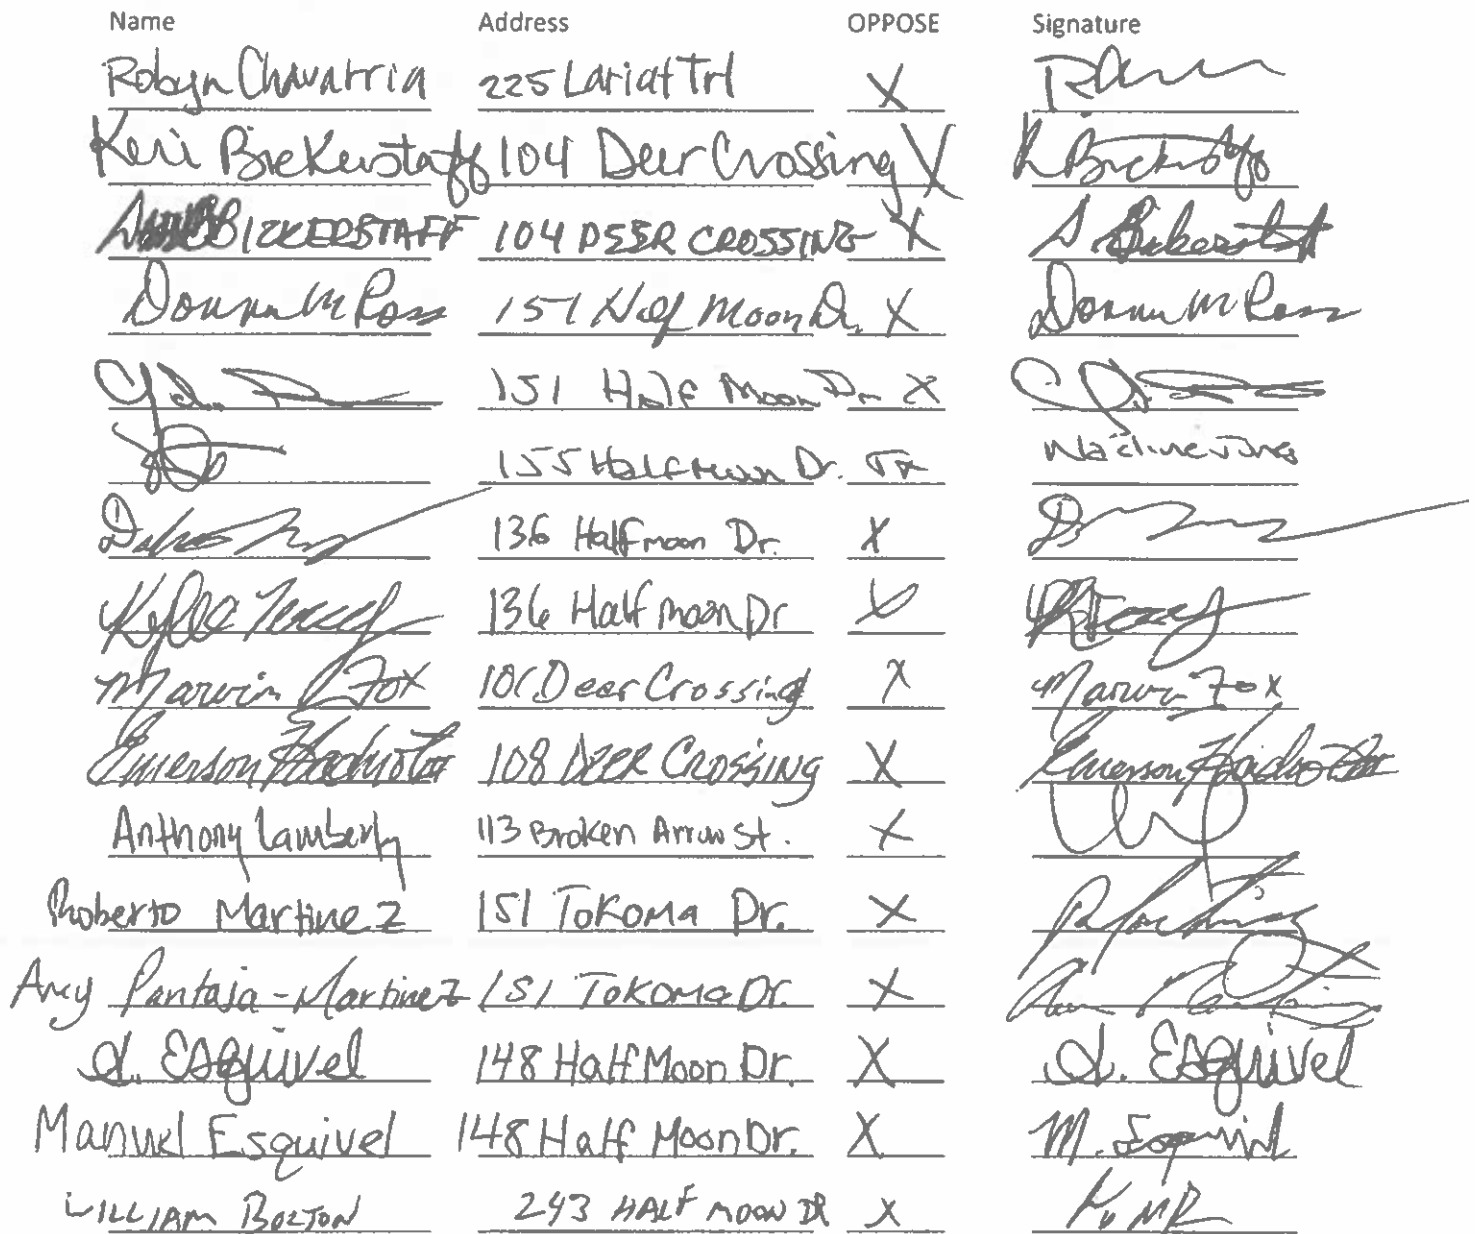 Name Address OPPOSE Signature
Robyn Chavarria 225 Lariat Trl X
Keri Bickerstaff 104 Deer Crossing X K Bickerstaff
BICKERSTAFF 104 DEER CROSSING X S Bickerstaff
Donna M Ross 151 Half Moon Dr. X Donna M Ross
151 Half Moon Dr. X
155 Half Moon Dr. Nadine Jones
136 Halfmoon Dr. X
Kylee 136 Half Moon Dr X
Marvin Fox 101 Deer Crossing X Marvin Fox
Emerson 108 DEER CROSSING X Emerson
Anthony Lamberty 113 Broken Arrow St. X
Roberto Martinez 151 Tokoma Dr. X
Amy Pantaja-Martinez 151 Tokoma Dr. X
Esquivel 148 Half Moon Dr. X Esquivel
Manuel Esquivel 148 Half Moon Dr. X M. Esquivel
WILLIAM BOLTON 243 HALF MOON DR X